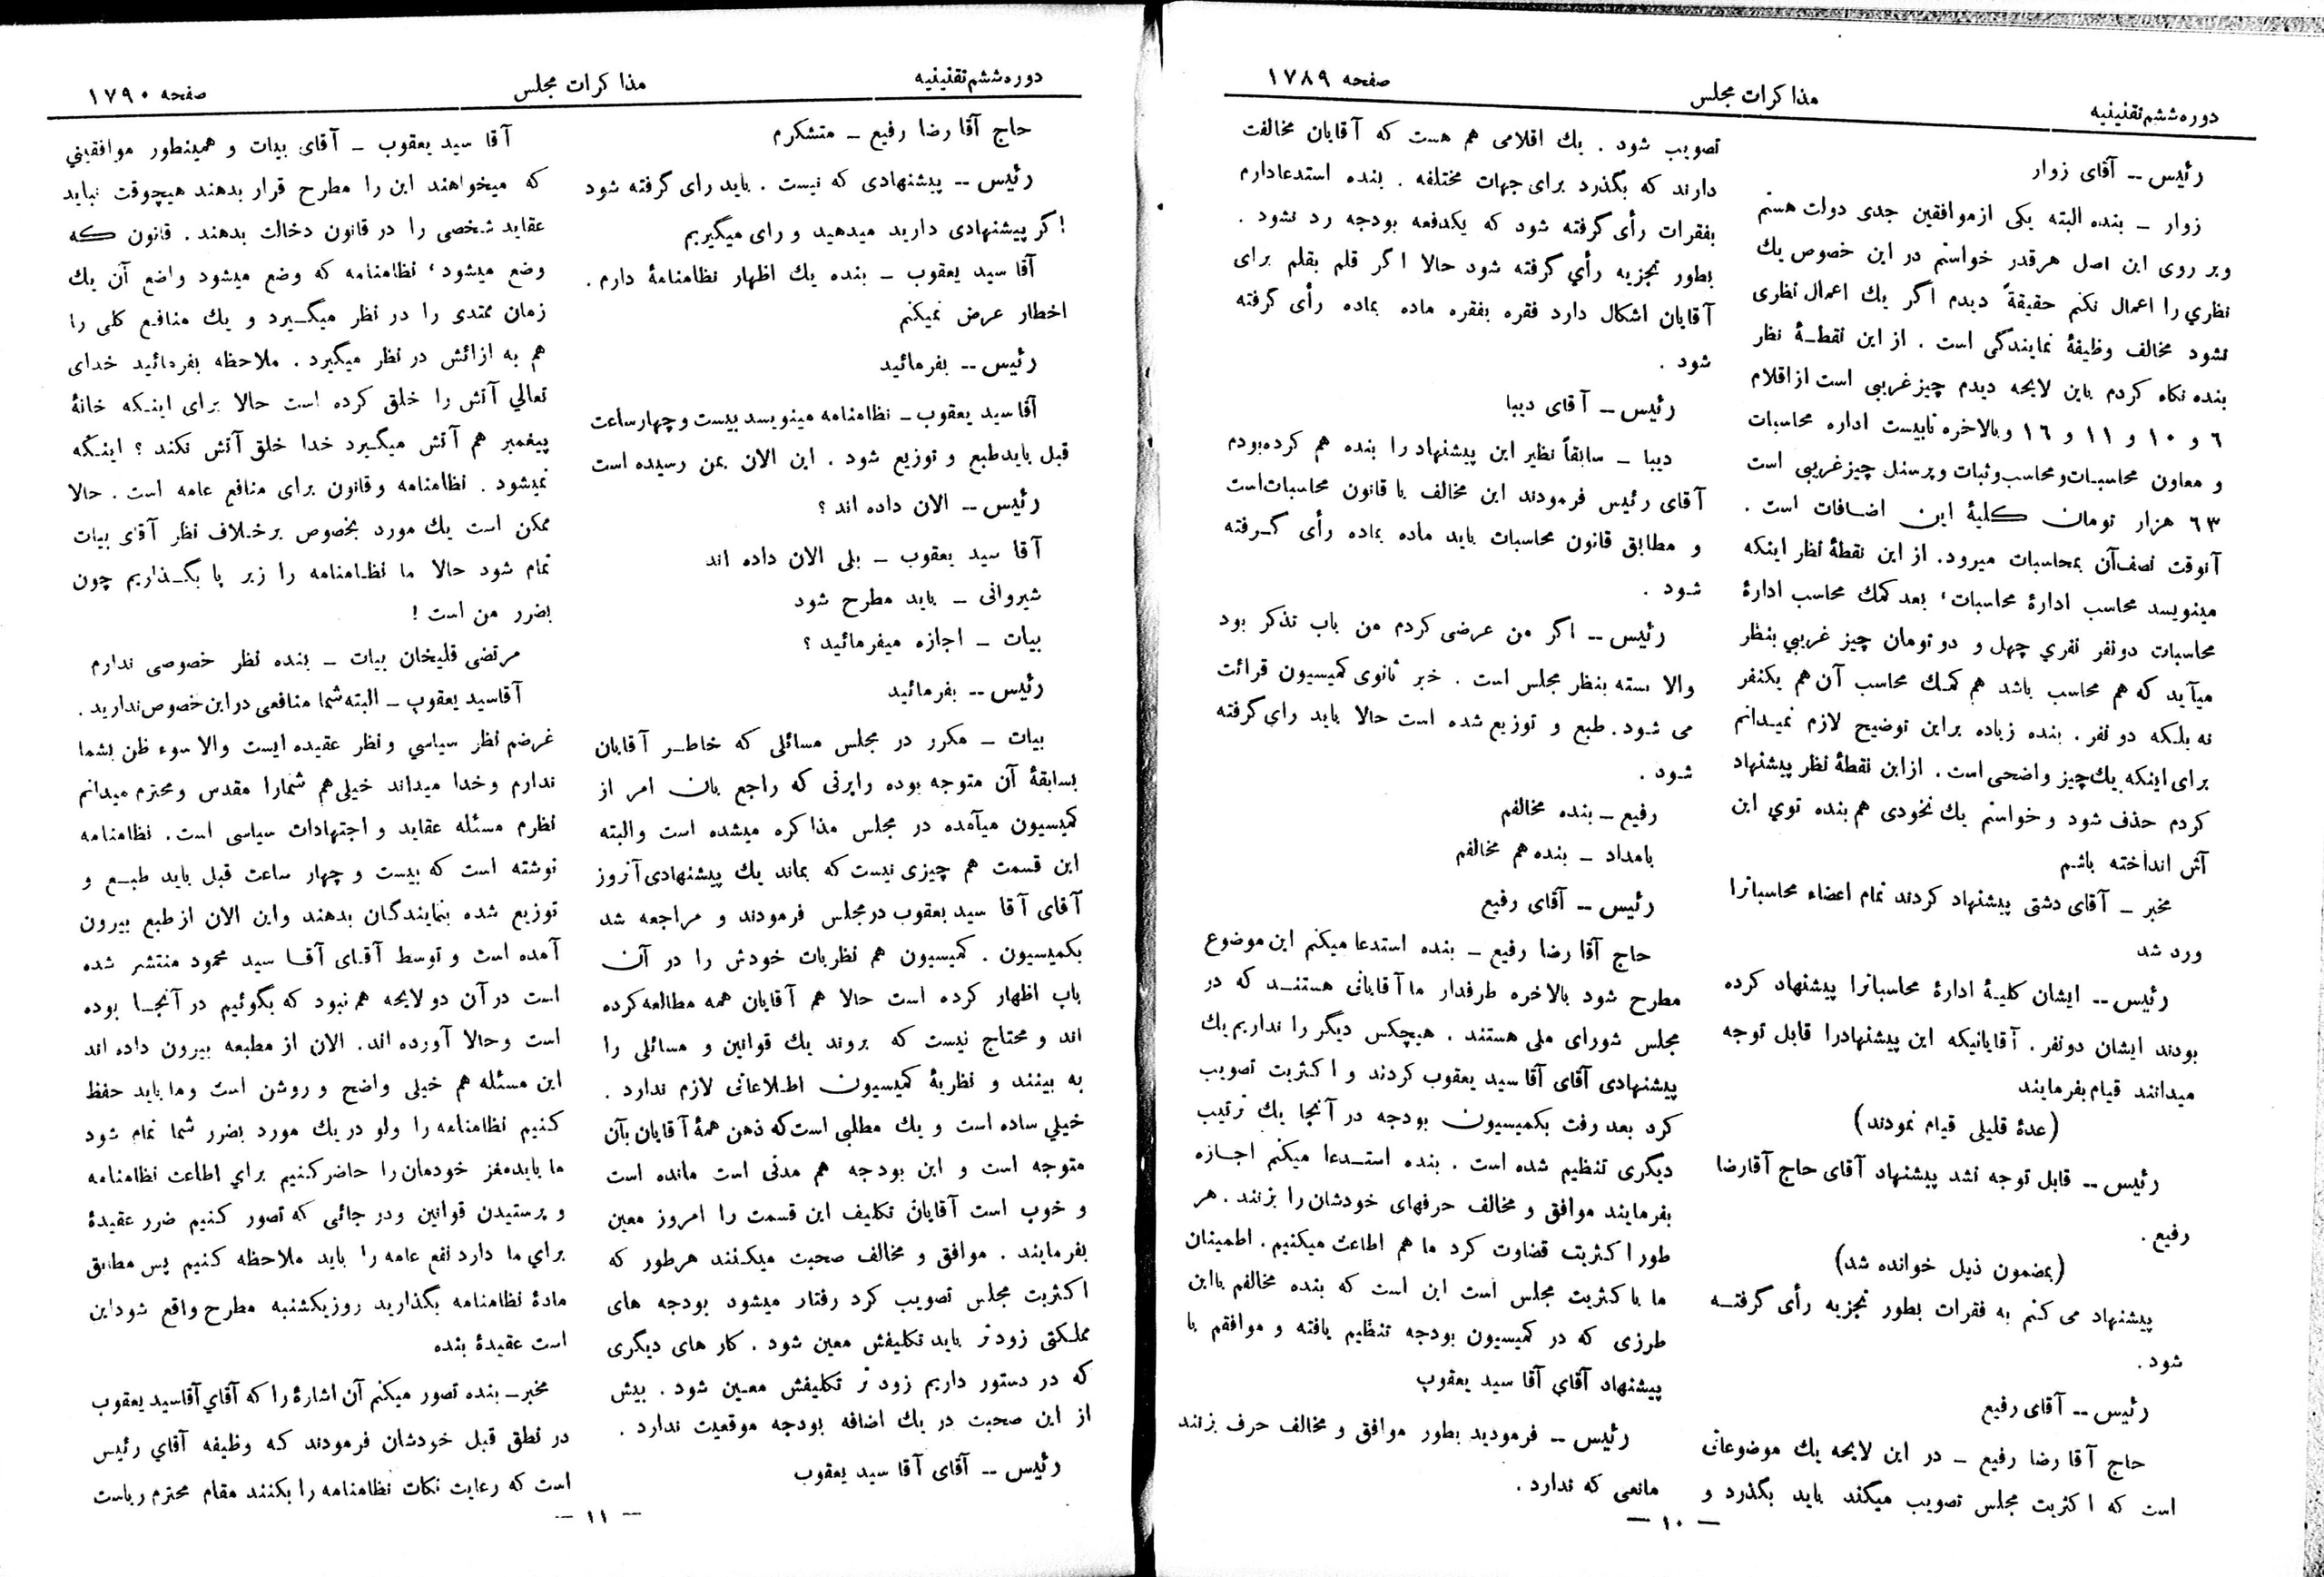 دوره ششم تقنینیه
مذاکرات مجلس
صفحه ۱۷۸۹
رئیس -- آقای زوار
زوار ـ بنده البته یکی از موافقین جدی دولت هستم
و بر روی این اصل هر قدر خواستم در این خصوص یك
نظري را اعمال نکنم حقیقةً دیدم اگر یك اعمال نظری
نشود مخالف وظیفهٔ نمایندگی است . از این نقطـهٔ نظر
بنده نگاه کردم باین لایحه دیدم چیز غریبی است از اقلام
۶ و ۱۰ و ۱۱ و ۱۶ و بالاخره تابیست اداره محاسبات
و معاون محاسبـات و محاسب و ثبات و پرسنل چیز غریبی است
۶۳ هزار تومان کلیهٔ این اضـافات است .
آنوقت نصف آن بمحاسبات میرود. از این نقطهٔ نظر اینکه
مینویسد محاسب ادارهٔ محاسبات، بعد کمك محاسب ادارهٔ
محاسبات دو نفر نفري چهل و دو تومان چیز غریبي بنظر
میآید که هم محاسب باشد هم کمـك محاسب آن هم یکنفر
نه بلـکه دو نفر . بنده زیاده بر این توضیح لازم نمیـدانم
برای اینکه یك چیز واضحی است . از این نقطهٔ نظر پیشنهاد
کردم حذف شود و خواستم یك نخودی هم بنده توي این
آش انداخته باشم
مخبر ـ آقای دشتی پیشنهاد کردند تمام اعضاء محاسباترا
ورد شد
رئیس -- ایشان کلیـهٔ ادارهٔ محاسباترا پیشنهاد کرده
بودند ایشان دو نفر . آقایانیکه این پیشنهادرا قابل توجه
میدانند قیام بفرمایند
(عدهٔ قلیلی قیام نمودند)
رئیس -- قابل توجه نشد پیشنهاد آقای حاج آقارضا
رفیع .
(بمضمون ذیل خوانده شد)
پیشنهاد می کنم به فقرات بطور تجزیه رأی گرفتـــه
شود .
رئیس -- آقای رفیع
حاج آقا رضا رفیع ـ در این لایحه یك موضوعاتی
است که اکثریت مجلس تصویب میکند باید بگذرد و
تصویب شود . یك اقلامی هم هست که آقایان مخالفت
دارند که بگذرد برای جهات مختلفه . بنده استدعا دارم
بفقرات رأی گرفته شود که یکدفعه بودجه رد نشود .
بطور تجزیه رأي گرفته شود حالا اگر قلم بقلم برای
آقایان اشکال دارد فقره بفقره ماده بماده رأی گرفته
شود .
رئیس ـ آقای دیبا
دیبا ـ سابقاً نظیر این پیشنهاد را بنده هم کرده بودم
آقای رئیس فرمودند این مخالف با قانون محاسبات است
و مطابق قانون محاسبات باید ماده بماده رأی گـرفته
شود .
رئیس -- اگر من عرضی کردم من باب تذکر بود
والا بسته بنظر مجلس است . خبر ثانوی کمیسیون قرائت
می شود . طبع و توزیع شده است حالا باید راي گرفته
شود .
رفیع ـ بنده مخالفم
بامداد ـ بنده هم مخالفم
رئیس -- آقای رفیع
حاج آقا رضا رفیع ـ بنده استدعا میکنم این موضوع
مطرح شود بالاخره طرفدار ما آقایانی هستنـد که در
مجلس شورای ملی هستند . هیچکس دیگر را نداریم یك
پیشنهادی آقای آقا سید یعقوب کردند و اکثریت تصویب
کرد بعد رفت بکمیسیون بودجه در آنجا یك ترتیب
دیگری تنظیم شده است . بنده استـدعا میکنم اجـازه
بفرمایند موافق و مخالف حرفهای خودشان را بزنند . هر
طور اکثریت قضاوت کرد ما هم اطاعت میکنیم . اطمینان
ما با کثریت مجلس است این است که بنده مخالفم با این
طرزی که در کمیسیون بودجه تنظیم یافته و موافقم با
پیشنهاد آقاي آقا سید یعقوب
رئیس -- فرمودید بطور موافق و مخالف حرف بزنند
مانعی که ندارد .
— ۱۰ —
دوره ششم تقنینیه
مذاکرات مجلس
صفحه ۱۷۹۰
حاج آقا رضا رفیع ـ متشکرم
رئیس -- پیشنهادی که نیست . باید رای گرفته شود
اگر پیشنهادی دارید میدهید و رای میگیریم
آقا سید یعقوب ـ بنده یك اظهار نظامنامهٔ دارم .
اخطار عرض نمیکنم
رئیس -- بفرمائید
آقا سید یعقوب ـ نظامنامه مینویسد بیست و چهار ساعت
قبل باید طبع و توزیع شود . این الان بمن رسیده است
رئیس -- الان داده اند ؟
آقا سید یعقوب ـ بلی الان داده اند
شیروانی ـ باید مطرح شود
بیات ـ اجازه میفرمائید ؟
رئیس -- بفرمائید
بیات ـ مکرر در مجلس مسائلی که خاطـر آقایان
بسابقهٔ آن متوجه بوده راپرتی که راجع بان امر از
کمیسیون میآمده در مجلس مذاکره میشده است و البته
این قسمت هم چیزی نیست که بماند یك پیشنهادی آنروز
آقای آقا سید یعقوب در مجلس فرمودند و مراجعه شد
بکمیسیون . کمیسیون هم نظریات خودش را در آن
باب اظهار کرده است حالا هم آقایان همه مطالعه کرده
اند و محتاج نیست که بروند یك قوانین و مسائلی را
به بینند و نظریهٔ کمیسیون اطـلاعاتی لازم ندارد .
خیلي ساده است و یك مطلبی است که ذهن همهٔ آقایان بآن
متوجه است و این بودجه هم مدتی است مانده است
و خوب است آقایان تکلیف این قسمت را امروز معین
بفرمایند . موافق و مخالف صحبت میکـنند هر طور که
اکثریت مجلس تصویب کرد رفتار میشود بودجه های
مملکتی زودتر باید تکلیفش معین شود . کار های دیگری
که در دستور داریم زودتر تکلیفش معـین شود . بیش
از این صحبت در یك اضافه بودجه موقعیت ندارد .
رئیس -- آقای آقا سید یعقوب
آقا سید یعقوب ـ آقای بیات و همینطور موافقیني
که میخواهند این را مطرح قرار بدهند هیچوقت نباید
عقاید شخصی را در قانون دخالت بدهند . قانون کـه
وضع میشود، نظامنامه که وضع میشود واضع آن یك
زمان ممتدی را در نظر میگـیرد و یك منافـع کلی را
هم به ازائش در نظر میگیرد . ملاحظه بفرمائید خدای
تعالي آتش را خلق کرده است حالا برای اینـکه خانهٔ
پیغمبر هم آتش میگـیرد خدا خلق آتش نکند ؟ اینـکه
نمیشود . نظامنامه و قانون برای منافع عامه است . حالا
ممکن است یك مورد بخصوص برخـلاف نظر آقاي بیات
تمام شود حالا ما نظـامنامه را زیر پا بگـذاریم چون
بضرر من است !
مرتضی قلیخان بیات ـ بنده نظر خصوصی ندارم
آقا سید یعقوب ـ البته شما منافعی در این خصوص ندارید .
غرضم نظر سیاسي و نظر عقیده ایست والا سوء ظن بشما
ندارم و خدا میداند خیلی هم شما را مقدس و محترم میدانم
نظرم مسئله عقاید و اجتهادات سیاسی است . نظامنامه
نوشته است که بیست و چهار ساعت قبل باید طبـع و
توزیع شده بنمایندگان بدهند و این الان از طبع بیرون
آمده است و توسط آقـای آقـا سید محمود منتشر شده
است در آن دو لایحه هم نبود که بگوئیم در آنجـا بوده
است و حالا آورده اند . الان از مطبعه بیرون داده اند
این مسئله هم خیلی واضح و روشن است و ما باید حفظ
کنیم نظامنامه را ولو در یك مورد بضرر شما تمام شود
ما باید مغز خودمان را حاضر کنیم براي اطاعت نظامنامه
و پرستیدن قوانین و در جائی که تصور کنیم ضرر عقیدهٔ
براي ما دارد نفع عامه را باید ملاحظه کنیم پس مطابق
مادهٔ نظامنامه بگذارید روز یکشنبه مطرح واقع شود این
است عقیدهٔ بنده
مخبر ـ بنده تصور میکنم آن اشارهٔ را که آقاي آقا سید یعقوب
در نطق قبل خودشان فرمودند که وظیفه آقاي رئیس
است که رعایت نکات نظامنامه را بکنند مقام محترم ریاست
— ۱۱ —